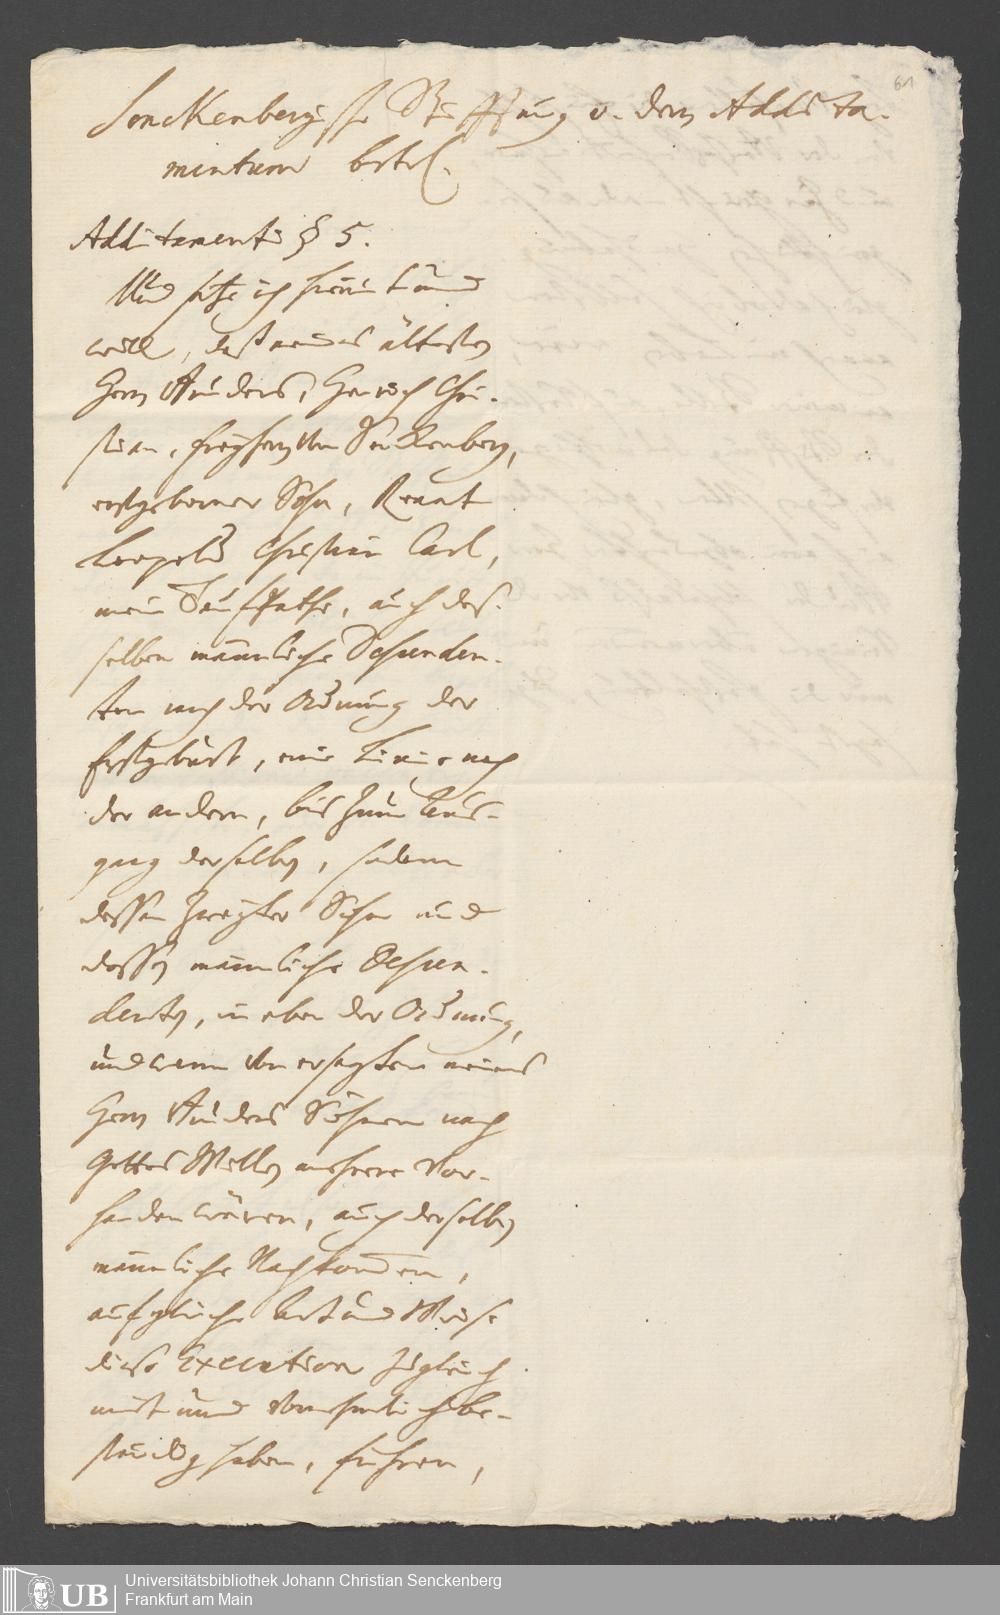 61
Senckenbergische Stifftung u. dero Addita-
mentum betrl.
Additamenti § 5.
Und setze ich hierin und
will, daß meines ältesten
Herrn Bruders, Henrich Chri-
stian, Freyherrn von Senckenberg,
erstgeborner Sohn, Renat
Leopold Christian Carl,
mein Tauf Pathe, auch des-
selben männliche Descenden-
ten nach der Ordnung der
Erstgeburt, eine Linie nach
der andern, bis zum Aus-
gang derselben, sodann
dessen zweyter Sohn und
dessen männliche Descen-
denten, in eben der Ordnung,
und wann von ersagten meines
Herrn Bruders Söhnen nach
Gottes Willen mehrere vor-
handen wären, auch derselben
männliche Nachkommen,
auf gleiche Art und Weise
diese Execution zugleich
mit und vornehmlich be-
ständig haben, führen,
UB
Universitätsbibliothek Johann Christian Senckenberg
Frankfurt am Main